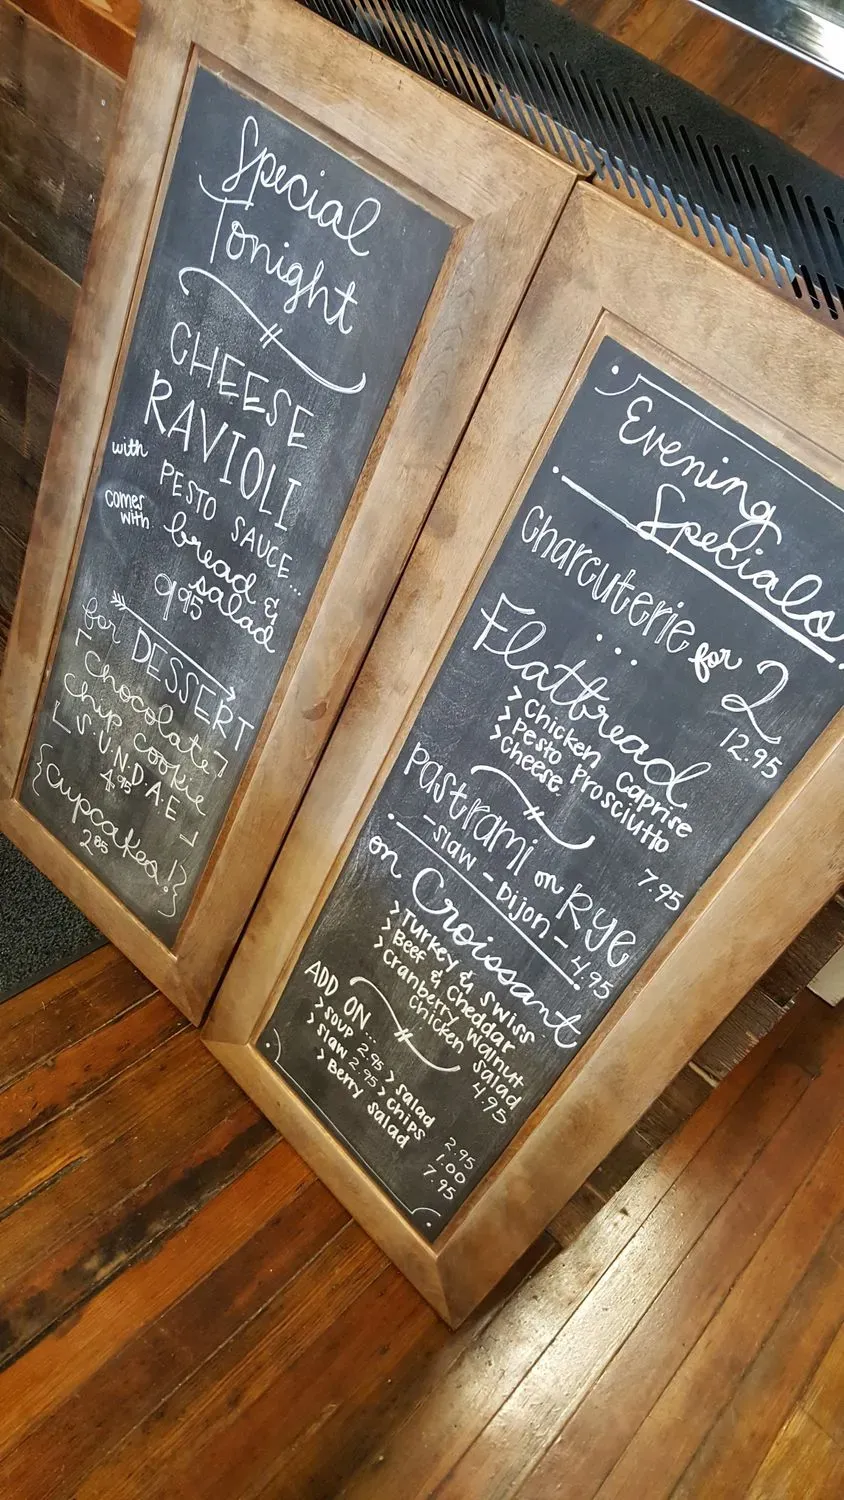 Special
Tonight
CHEESE
RAVIOLI
with PESTO SAUCE...
comes with bread &
salad
9.95
for DESSERT
chocolate
chip cookie
S.U.N.D.A.E
4.95
{cupcakes!}
2.85
Evening
Specials
Charcuterie for 2
12.95
Flatbread
> Chicken Caprise
> Pesto Prosciutto
> Cheese
7.95
Pastrami on Rye
- slaw - Dijon - 4.95
on Croissant
> Turkey & Swiss
> Beef & Cheddar
> Cranberry Walnut
Chicken Salad
4.95
ADD ON...
> soup 2.95 > salad 2.95
> slaw 2.95 > chips 1.00
> Berry salad 7.95